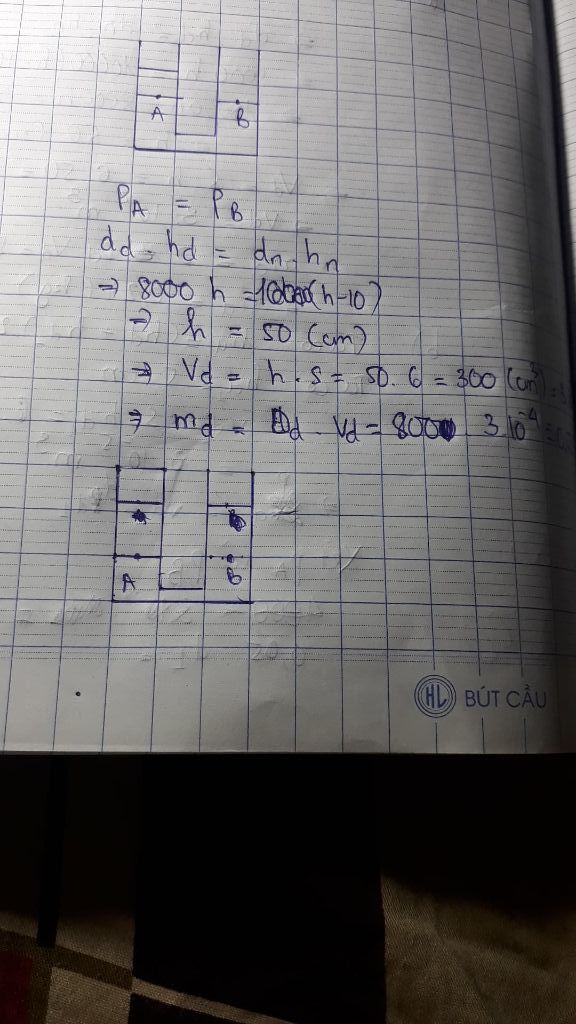 A B
PA = PB
dd . hd = dn . hn
=> 8000 h = 10000(h-10)
=> h = 50 (cm)
=> Vd = h . S = 50 . 6 = 300 (cm³)
=> md = Dd . Vd = 800 . 3.10⁻⁴
A B
HL BÚT CẦU